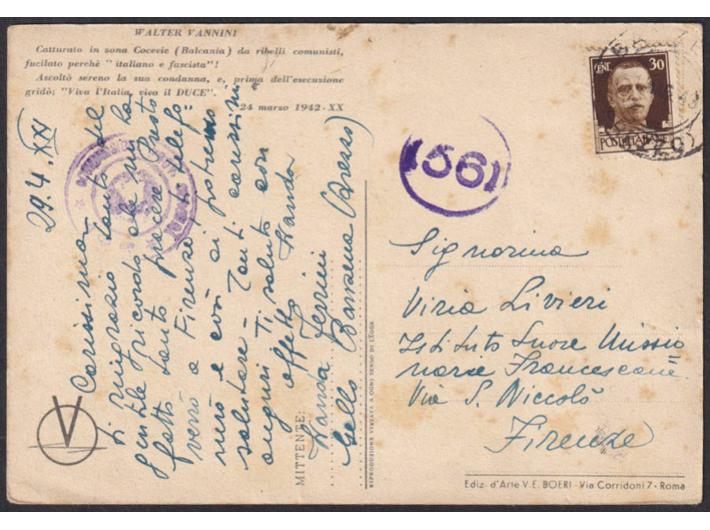 WALTER VANNINI
Catturato in zona Gocevie (Balcania) da ribelli comunisti,
fucilato perchè "italiano e fascista"!
Ascoltò sereno la sua condanna, e, prima dell'esecuzione
gridò: "Viva l'Italia, viva il DUCE".
24 marzo 1942-XX
29.4.XXI
Carissima
ti ringrazio tanto del
gentile ricordo che mi ha
fatto tanto piacere. Presto
verrò a Firenze, ti telefo-
nerò e così ci potremo
salutare - Tanti carissimi
auguri Ti saluto con
affetto
MITTENTE:
RIPRODUZIONE VIETATA A OGNI SENSO DI LEGGE
V
561
CENT. 30
POSTE ITALIANE
Signorina
Viria Livieri
Istituto Suore Missio=
narie Francescane
Via S. Niccolò
Firenze
Ediz. d'Arte V. E. BOERI - Via Corridoni 7 - Roma